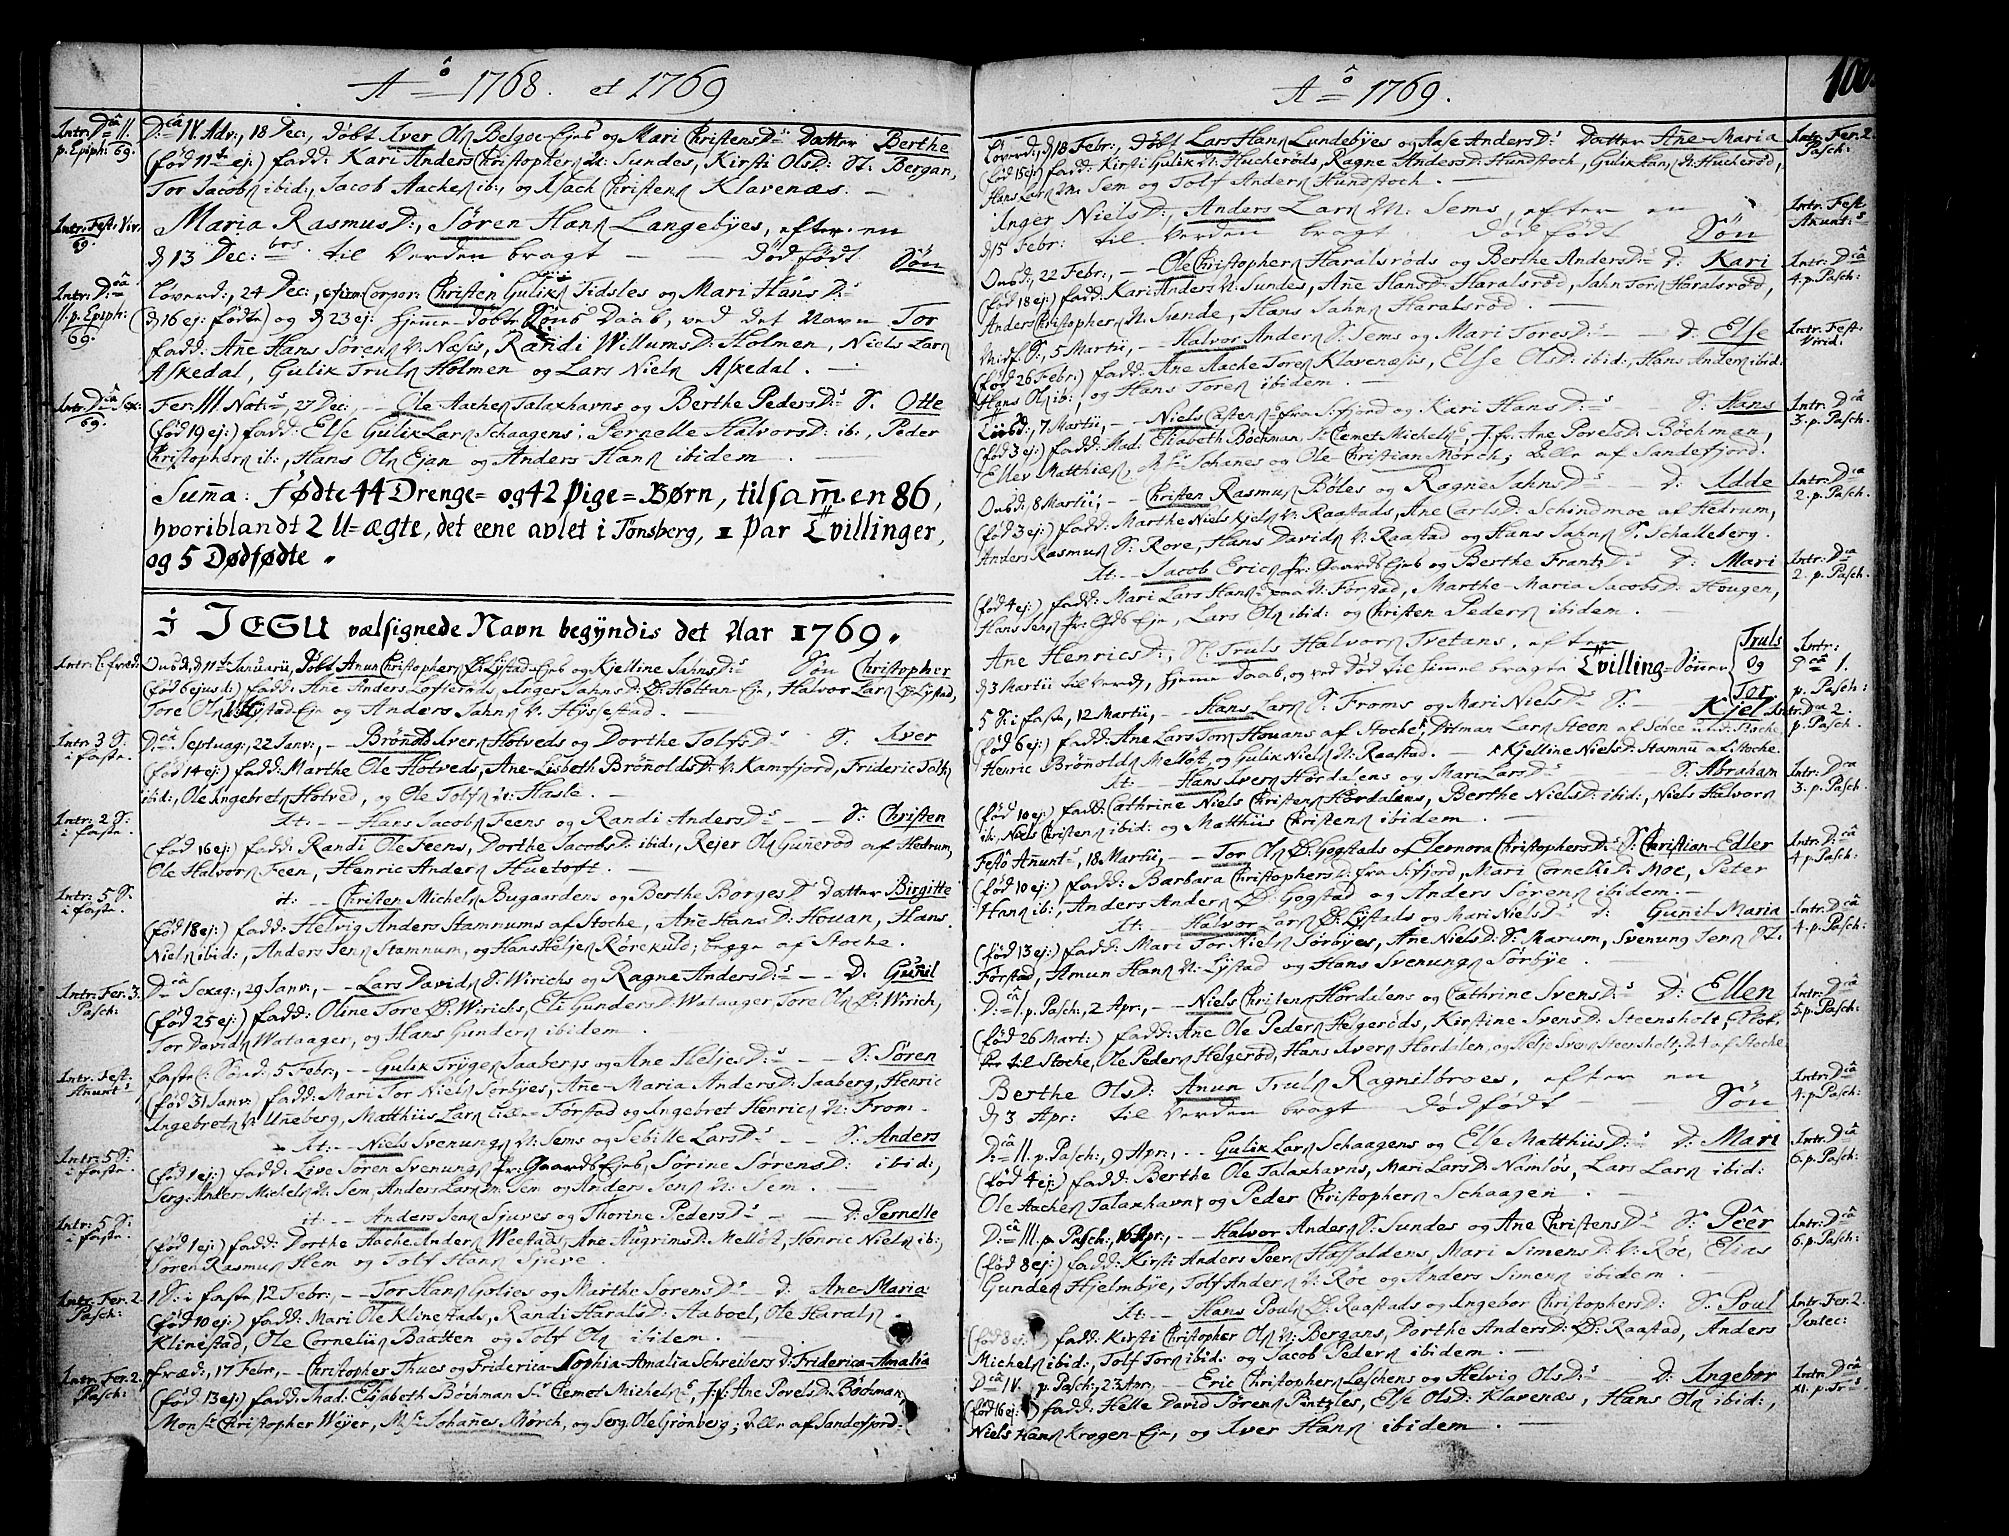 Aô 1768. et 1769
Intr: Dcâ II. p. Epiph: 69.
Dca IV. Adv:, 18 Dec:, døbt Iver Ols Belgoe-Ejes og Mari ChristensD:s Datter Berthe
(fød 11t ej:) fadd: Kari Anders Christophers N: Sundes, Kirsti OlsD: St: Bergan,
Tor Jacobs ibid:, Jacob Aaches ib:, og Isach Christens Klavenæs. —
Intr: Fest: Vir. 69.
Maria RasmusD:, Søren Hans Langebyes, efter en
d 13 Dec:brs til Verden bragt — — dødfødt Søn
Intr: Dcâ II. p. Epiph: 69.
Løverd:, 24 Dec:, Corpor: Christen Guliks Tidsles og Mari HansD:s
(d 16 ej: fødte) og d 23 ej: hjemme-døbte Søns Daab, ved det Navn Tor
fadd: Ane Hans Sørens N: Nasis, Randi WillumsD: Holmen, Niels Lars
Askedal, Gulik Truls Holmen og Lars Niels Askedal. —
Intr: Dcâ Sex: 69.
Fer: III Nat:s, 27 Dec:, — Ole Aaches Talaxhavns og Berthe PedersD:s S. Otte
(fød 19 ej:) fadd: Else Gulik Lars Schaagens, Pernelle HalvorsD: ib:, Peder
Christophers ib:, Hans Ols Ejan og Anders Hans ibidem —
Suma: fødte 44 Drenge= og 42 Pige=Børn, tilsamen 86,
hvoriblandt 2 U=ægte, det eene avlet i Tønsberg, 1 Par Tvillinger,
og 5 Dødfødte.
I JESU vælsignede Navn begyndis det Aar 1769.
Onsd:, d 11t Januarii, døbt Anun Christophers Ø: Lystad-Ejes og Kjelline JahnsD:s Søn Christopher
(fød 6 ejusd:) fadd: Ane Anders Lofterøds, Inger JahnsD: Ø: Holtan-Eje, Halvor Lars Ø: Lystad,
Tore Ols Lystad-Eje og Anders Jahns N: Hyssestad. —
Intr: 3 S. i faste.
Dcâ Septuag:, 22 Janv:, — Brønold Ivers Hotveds og Dorthe TolfsD:s S: Iver
(fød 14 ej:) fadd: Marthe Ole Hotveds, Ane-Lisbeth BrønoldsD: V: Kamfjord, Frideric Tolfs
ibid:, Ole Ingebrets Hotved, og Ole Tolfs N: Hasle. —
Intr: 2 S: i faste.
It: — Hans Jacobs Feens og Randi AndersD:s — — S: Christen
(fød 16 ej:) fadd: Randi Ole Feens, Dorthe JacobsD: ibid:, Rejer Ols Gunerød af Hedrum,
Ole Halvors Feen, Henric Anders Huetoft. —
Intr: 5 S: i faste.
it: — Christen Michels Bugaardens og Berthe BørgesD:s Datter Birgitte
(fød 18 ej:) fadd: Helvig Anders Stamnums af Stoche, Ane HansD: Houan, Hans
Niels ibid:, Anders Jens Stamnum, og Hans Heljes Rørekuld; begge af Stoche.
Intr: Fer: 3. Pasch:
Dcâ Sexag:, 29 Janv:, — Lars Davids S: Wirichs og Ragne AndersD:s — — D: Gunil
(fød 25 ej:) fadd: Oline Tore Ø: Wirichs, Eli GundersD: Wataager, Tore Ols Ø: Wirich,
Tor Davids Wataager, og Hans Gunders ibidem. —
Intr: Fest: Anunt:s
faste l: Sønd: 5 Febr:, — Gulik Tryges Jaabergs og Ane HeljesD:s — S: Søren
(fød 31 Janv:) fadd: Mari Tor Niels Sørbyes, Ane-Maria AndersD: Jaaberg, Henric
Ingebrets V: Uneberg, Matthiis Lars Forstad og Ingebret Henrics N: From. —
Intr: 5 S: i faste.
It: — Niels Svenungs N: Sems og Sebille LarsD:s — — S: Anders
(fød 1 ej:) fadd: Live Søren Svenungs Pr: GaardsEjes, Sørine SørensD: ibid:,
Serg: Anders Michels N: Sem, Anders Lars N: Sem og Anders Jens N: Sem. —
Intr: 5 S: i faste.
it: — Anders Jens Sjuves og Thorine PedersD:s — D: Pernelle
(fød 1 ej:) fadd: Dorthe Aache Anders Weestads, Ane AugrimsD: Melløst, Henric Niels ib:,
Søren Rasmus Hem og Tolf Hans Sjuve. —
Intr: Fer: 2. Pasch:
1 S: i faste 12 Febr:, — Tor Hans Golies og Marthe SørensD:s — d: Ane-Maria
(fød 10 ej:) fadd: Mari Ole Klinestads, Randi HaralsD: Aaboel, Ole Harals
Klinestad, Ole Corneliis Baatten og Tolf Ols ibidem. —
Intr: Fer: 2. Pasch:
fræd:, 17 Febr:, — Christopher Thues og Friderica-Sophia-Amalia Schreibers D: Friderica-Amalia
(fød 13 ej:) fadd: Mad: Elisabeth Bøchman Sr Clemet Michels, J:fr: Ane PovelsD: Bøchman,
Monsr: Christopher Wejer, Msr Johanes Mørch, og Serg: Ole Grønberg; Alle af Sandefjord.
Aô 1769.
100.
Løverd: d 18 Febr:, døbt Lars Hans Lundebyes og Aase AndersD: Datter Ane-Maria
Intr: Fer: 2. Pasch:
(fød 15 ej:) fadd: Kirsti Gulik N: Hucherøds, Ragne AndersD: Hundstoch, Gulik Hans N: Hucherød,
Hans Lars N: Sem og Tolf Anders Hundstoch. —
Inger NielsD:, Anders Lars N: Sems, efter en
Intr: Fest Anunt:s
d 15 Febr: til Verden bragt dødfødt Søn
Onsd:, 22 Febr:, — Ole Christophers Haralsrøds og Berthe AndersD:s D: Kari
Intr: Dcâ 4. p. Pasch:
(fød 18 ej:) fadd: Kari Anders N: Sundes, Ane HansD: Haralsrød, Jahn Tors Haralsrød,
Anders Christophers N: Sunde, Hans Jahns Haralsrød. —
Midf: S:, 5 Martii, — Halvor Anders S: Sems og Mari ToresD:s — — d: Else
Intr: Fest: Virid.
(fød 26 Febr:) fadd: Ane Aache Tores Klavenæsis, Else OlsD: ibid:, Hans Anders ibid:
Hans Ols ib:, og Hans Tores ibidem. —
7 Martii, — Niels Castens fra S:fjord og Kari HansD:s — — S: Hans
Intr: Dcâ 3. p. Pasch:
(fød 3 ej:) fadd: Mad: Elisabeth Bøchman, Sr Clemet Michels, J.fr: Ane PovelsD: Bøchman,
Eller Matthias, Msr Johanes og Ole Christian Mørch; Alle af Sandefjord.
Onsd:, 8 Martii, — Christen Rasmus Bøles og Ragne JahnsD:s — — D: Adde
Intr: Dca 2. p. Pasch:
(fød 3 ej:) fadd: Marthe Niels Kjels V: Raastads, Ane CarlsD: Schindmoe af Hedrum,
Anders Rasmus S: Rore, Hans Davids V: Raastad og Hans Jahns S: Schalleberg.
It: — Jacob Erics Pr: GaardsEjes og Berthe FrantsD:s D: Mari
Intr: Dca 2. p. Pasch:
(fød 4 ej:) fadd: Mari Lars Hans N: Forstad, Marthe-Maria JacobsD: Hougen,
Hans Jens Pr: Gds Eje, Lars Ols ibid: og Christen Peders ibidem. —
Ane HenricsD:, N: Truls Halvors Tvetans, efter
d 3 Martii til Verd:, hjemme daab, og ved død til himel bragte Tvilling=Sønner Truls og Tor
Intr: Dcâ 1. p. Pasch:
5 S: i faste, 12 Martii, — Hans Lars S: Froms og Mari NielsD:s S: — Kjel
Intr: Dca 2. p. Pasch.
(fød 6 ej:) fadd: Ane Lars Tors Houans af Stoche, Ditman Lars Steen af Schee
Henric Brønolds Melløst, og Gulik Niels N: Raastad. — Kjelline NielsD: Stamnu af Stoche.
It: — Hans Ivers Hordalens og Mari LarsD:s — S: Abraham
Intr: Dca 3. p. Pasch.
(fød 10 ej:) fadd: Cathrine Niels Christens Hordalens, Berthe NielsD: ibid:, Niels Halvors
ib:, Niels Christens ibid: og Matthiis Christens ibidem. —
Festô Anunt:s, 18 Martii, — Tor Ols Ø: Gogstads og Lenora ChristophersD: S: Christian-Edler
Intr: Dcâ 4 p. Pasch:
(fød 10 ej:) fadd: Barbara ChristophersD: fra S:fjord, Mari CorneliisD: Moe, Peter
Hans ib:, Anders Anders Ø: Gogstad og Anders Sørens ibidem. —
It: — Halvor Lars Ø: Lystads og Mari NielsD:s D: Gunil Maria
Intr: Dcâ 4. p. Pasch:
(fød 13 ej:) fadd: Mari Tor Niels Sørbyes, Ane NielsD: S: Marum, Svenung Jens St.
Forstad, Amun Hans N: Lystad og Hans Svenungs Sørbye. —
Dcâ 1. p. Pasch:, 2 Apr:, — Niels Christens Hordalens og Cathrine SvensD:s D: Ellen
Intr: Dcâ 5. p. Pasch:
(fød 26 Mart:) fadd: Ane Ole Peders Helgerøds, Kirstine SvensD: Steensholt, Klok-
ker til Stoche, Ole Peders Helgerød, Hans Ivers Hordalen, og Helje Svens Steensholt; Det af Stoche
Berthe OlsD: Anun Truls Ragnilbroes, efter en
Intr: Dcâ 4. p. Pasch:
d 3 Apr: til Verden bragt dødfødt — Søn
Dcâ II. p. Pasch:, 9 Apr:, — Gulik Lars Schaagens og Else MatthiisD:s D: Mari
Intr: Dcâ 6. p. Pasch:
(fød 4 ej:) fadd: Berthe Ole Talaxhavns, Mari LarsD: Namløs, Lars Lars ibid:
Ole Aaches Talaxhavn, og Peder Christophers Schaagen. —
Dcâ III. p. Pasch:, 16 Apr:, — Halvor Anders S: Sundes og Ane ChristensD:s S: Peêr
Intr: Dcâ 6. p. Pasch:
(fød 8 ej:) fadd: Kirsti Anders Peers Haffaldens, Mari SimensD: V: Røe, Elias
Gunders Hjelmbye, Tolf Anders V: Røe og Anders Simens ibidem. —
It: — Hans Pouls Ø: Raastads og Ingebor ChristophersD: S. Poul
Intr: Fer: 2. Pentec:
(fød 8 ej:) fadd: Kirsti Christopher Ols N: Bergans, Dorthe AndersD: Ø: Raastad, Anders
Michels ibid:, Tolf Tors ibid: og Jacob Peders ibidem. —
Dca IV. p. Pasch:, 23 Apr:, — Eric Christophers Leschens og Helvig OlsD:s — D: Ingebor
Intr: Dcâ XI. p. Tr:s
(fød 16 ej:) fadd: Helle David Sørens Pintzles, Else OlsD: Klavenæs, Hans Ols ibid:,
Niels Hans Krogen-Eje, og Iver Hans ibidem. —